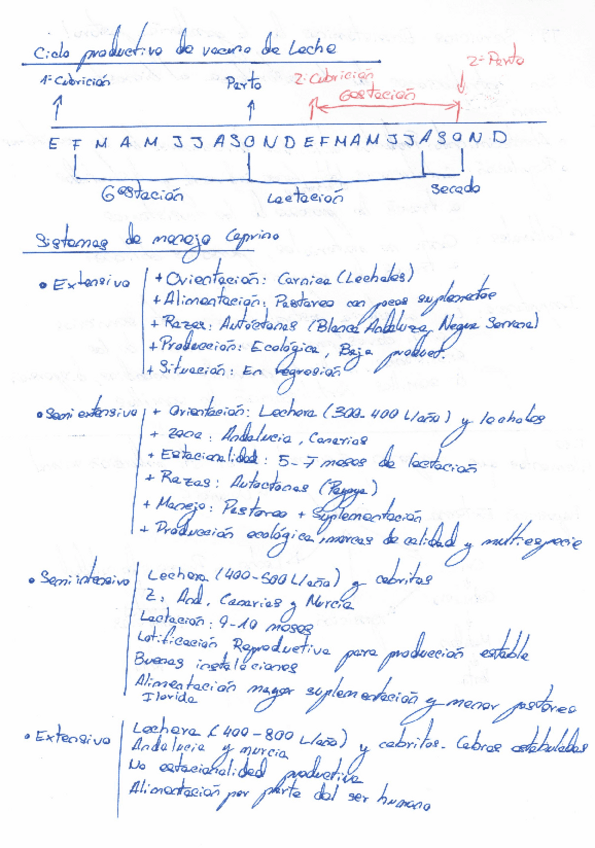 Ciclo productivo de vacuno de Leche
1ª Cubrición Parto 2ª Cubrición 2º Parto
Gestación
E F M A M J J A S O N D E F M A M J J A S O N D
Gestación Lactación Secado
Sistemas de manejo Caprino
• Extensivo + Orientación: Carnica (Lechales)
+ Alimentación: Pastoreo con pocos suplementos
+ Razas: Autóctonas (Blanca Andaluza, Negra Serrana)
+ Producción: Ecológica, Baja product.
+ Situación: En regresión
• Semi extensivo + Orientación: Lechera (300-400 L/año) y lechales
+ zona: Andalucia, Canarias
+ Estacionalidad: 5-7 meses de lactación
+ Razas: Autóctonas (Payoya)
+ Manejo: Pastoreo + Suplementación
+ Producción ecológica, marcas de calidad y multiespecie
• Semi intensivo Lechera (400-500 L/año) y cabritos
Z: And, Canarias y Murcia
Lactación: 9-10 meses
Lotificación Reproductiva para producción estable
Buenas instalaciones
Alimentación mayor suplementación y menor pastoreo
Florida
• Extensivo Lechera (400-800 L/año) y cabritos. Cabras estabuladas
Andalucia y murcia
No estacionalidad productiva
Alimentación por parte del ser humano